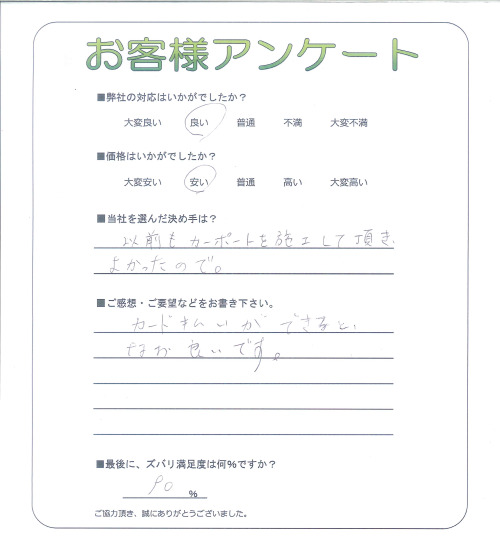 お客様アンケート
■弊社の対応はいかがでしたか？
大変良い 良い 普通 不満 大変不満
■価格はいかがでしたか？
大変安い 安い 普通 高い 大変高い
■当社を選んだ決め手は？
以前もカーポートを施工して頂き、
よかったので。
■ご感想・ご要望などをお書き下さい。
カード払いができると、
なお良いです。
■最後に、ズバリ満足度は何%ですか？
90 %
ご協力頂き、誠にありがとうございました。